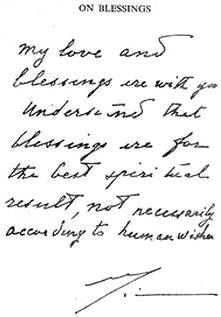 ON BLESSINGS
my love and
blessings are with you
Understand that
blessings are for
the best spiritual
result, not necessarily
according to human wishes